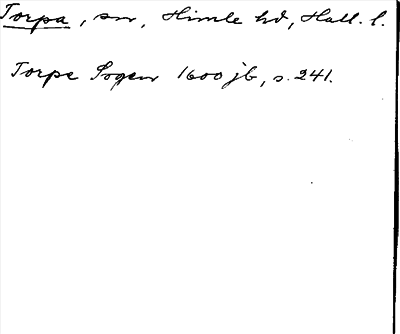 Torpa, sn, Himle hd, Hall. l.
Torpe Sogen 1600 jb, s. 241.